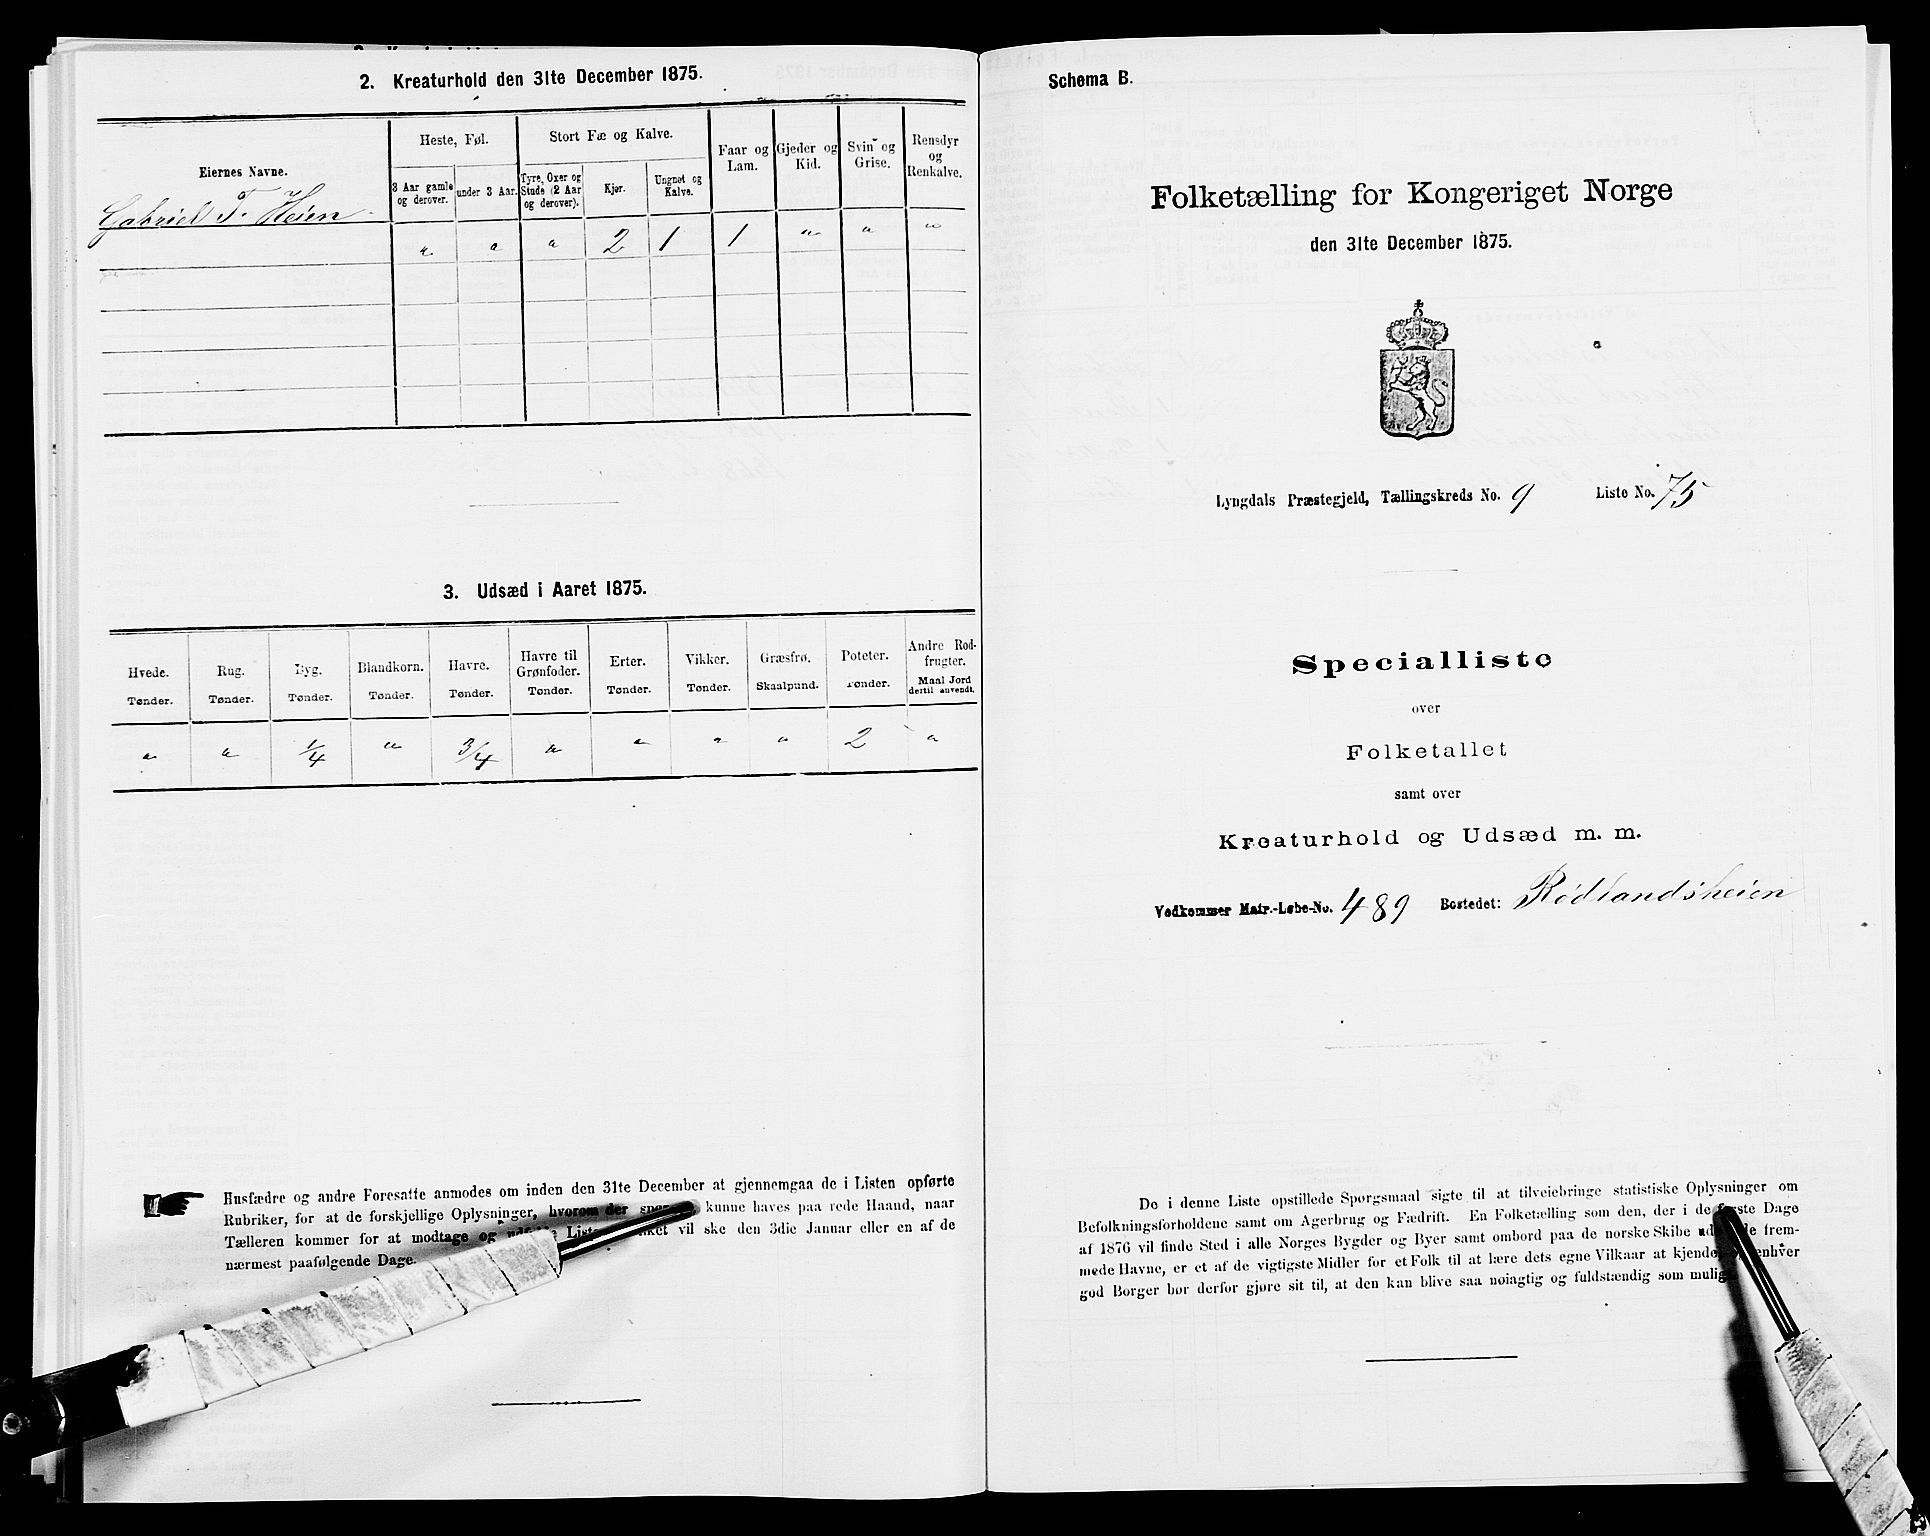 2. Kreaturhold den 31te December 1875.
Eiernes Navne.
Heste, Føl.
Stort Fæ og Kalve.
Faar og Lam.
Gjeder og Kid.
Svin og Grise.
Rensdyr og Renkalve.
3 Aar gamle og derover.
under 3 Aar.
Tyre, Oxer og Stude (2 Aar og derover).
Kjør.
Ungnøt og Kalve.
Gabriel T. Heien
" " " 2 1 1 " " "
3. Udsæd i Aaret 1875.
Hvede. Rug. Byg. Blandkorn. Havre. Havre til Grønfoder. Erter. Vikker. Græsfrø. Poteter. Andre Rodfrugter.
Tønder. Tønder. Tønder. Tønder. Tønder. Tønder. Tønder. Tønder. Skaalpund. Tønder. Maal Jord dertil anvendt.
" " 1/4 " 3/4 " " " " 2 "
Husfædre og andre Foresatte anmodes om inden den 31te December at gjennemgaa de i Listen opførte
Rubriker, for at de forskjellige Oplysninger, hvorom der kunne haves paa rede Haand, naar
Tælleren kommer for at modtage og vil ske den 3die Januar eller en af de
nærmest paafølgende Dage.
Schema B.
Folketælling for Kongeriget Norge
den 31te December 1875.
Lyngdals Præstegjeld, Tællingskreds No. 9 Liste No. 75
Specialliste
over
Folketallet
samt over
Kreaturhold og Udsæd m. m.
Vedkommer Matr.-Løbe-No. 489 Bostedet: Rødlandsheien
De i denne Liste opstillede Spørgsmaal sigte til at tilveiebringe statistiske Oplysninger om
Befolkningsforholdene samt om Agerbrug og Fædrift. En Folketælling som den, der i de første Dage
af 1876 vil finde Sted i alle Norges Bygder og Byer samt ombord paa de norske Skibe ude frem-
mede Havne, er et af de vigtigste Midler for et Folk til at lære dets egne Vilkaar at kjende, enhver
god Borger bør derfor gjøre sit til, at den kan blive saa nøiagtig og fuldstændig som